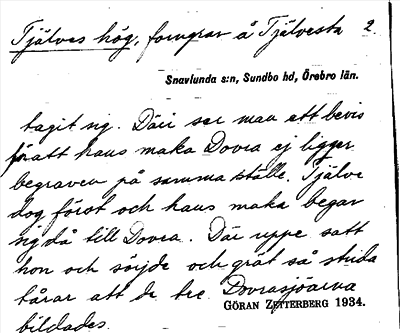 Tjälves hög, forngrav å Tjälvesta 2
Snavlunda s:n, Sundbo hd, Örebro län.
tagit sig. Däri ser man ett bevis
för att hans maka Dovra ej ligger
begraven på samma ställe. Tjälve
dog först och hans maka begav
sig då till Dovra. Där uppe satt
hon och sörjde och grät så strida
tårar att de tre Dovrasjöarna
GÖRAN ZETTERBERG 1934.
bildades.